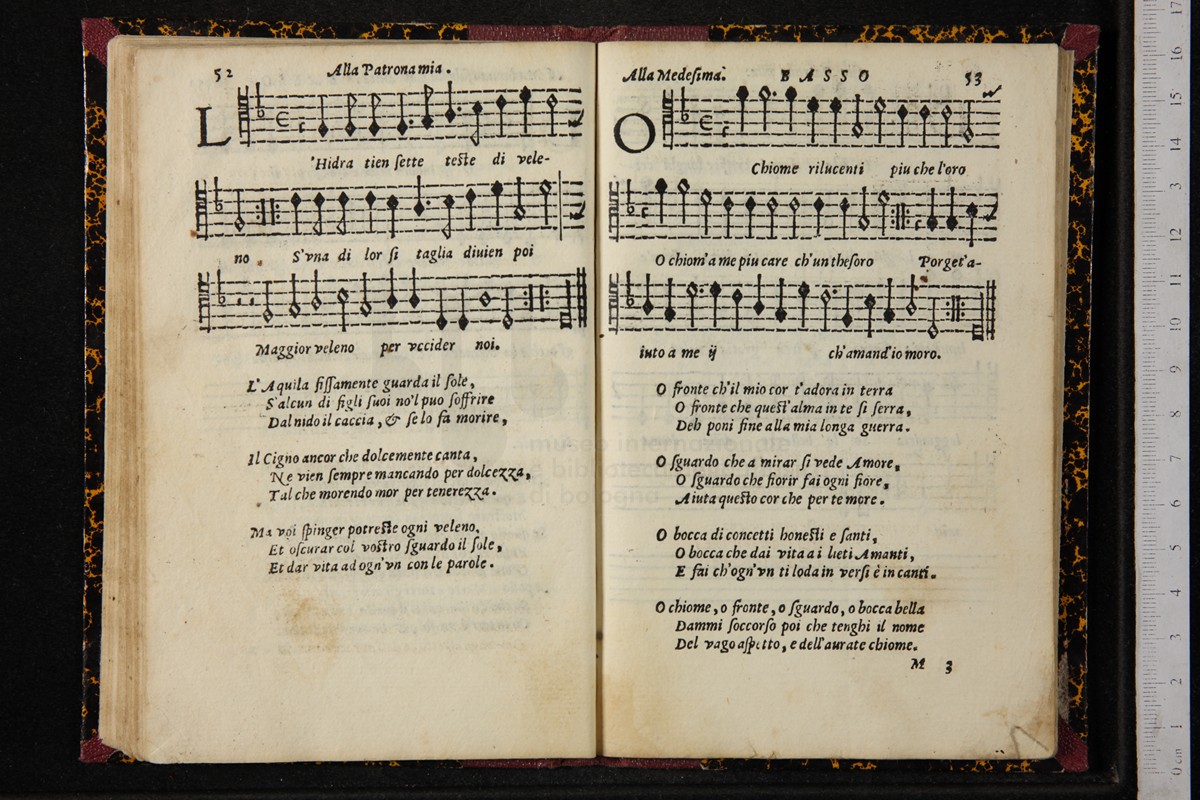 52
Alla Patrona mia.
L
'Hidra tien ſette teſte di vele-
no. S'vna di lor ſi taglia diuien poi
Maggior veleno per vccider noi.
L'Aquila fiſſamente guarda il ſole,
S'alcun di figli ſuoi no'l puo ſoffrire
Dal nido il caccia, & ſe lo fa morire,
Il Cigno ancor che dolcemente canta,
Ne vien ſempre mancando per dolcezza,
Tal che morendo mor per tenerezza.
Ma voi ſpinger potreſte ogni veleno.
Et oſcurar col voſtro ſguardo il ſole,
Et dar vita ad ogn'vn con le parole.
Alla Medeſima. BASSO 53
O
Chiome rilucenti piu che l'oro
O chiom'a me piu care ch'un theſoro Porget'a-
iuto a me ij ch'amand'io moro.
O fronte ch'il mio cor t'adora in terra
O fronte che queſt'alma in te ſi ſerra,
Deh poni fine alla mia longa guerra.
O ſguardo che a mirar ſi vede Amore,
O ſguardo che fiorir fai ogni fiore,
Aiuta queſto cor che per te more.
O bocca di concetti honeſti e ſanti,
O bocca che dai vita a i lieti Amanti,
E fai ch'ogn'vn ti loda in verſi è in canti.
O chiome, o fronte, o ſguardo, o bocca bella
Dammi ſoccorſo poi che tenghi il nome
Del vago aſpetto, e dell'aurate chiome.
M 3
museo internazionale
e biblioteca
di bologna
0 cm 1 2 3 4 5 6 7 8 9 10 11 12 13 14 15 16 17